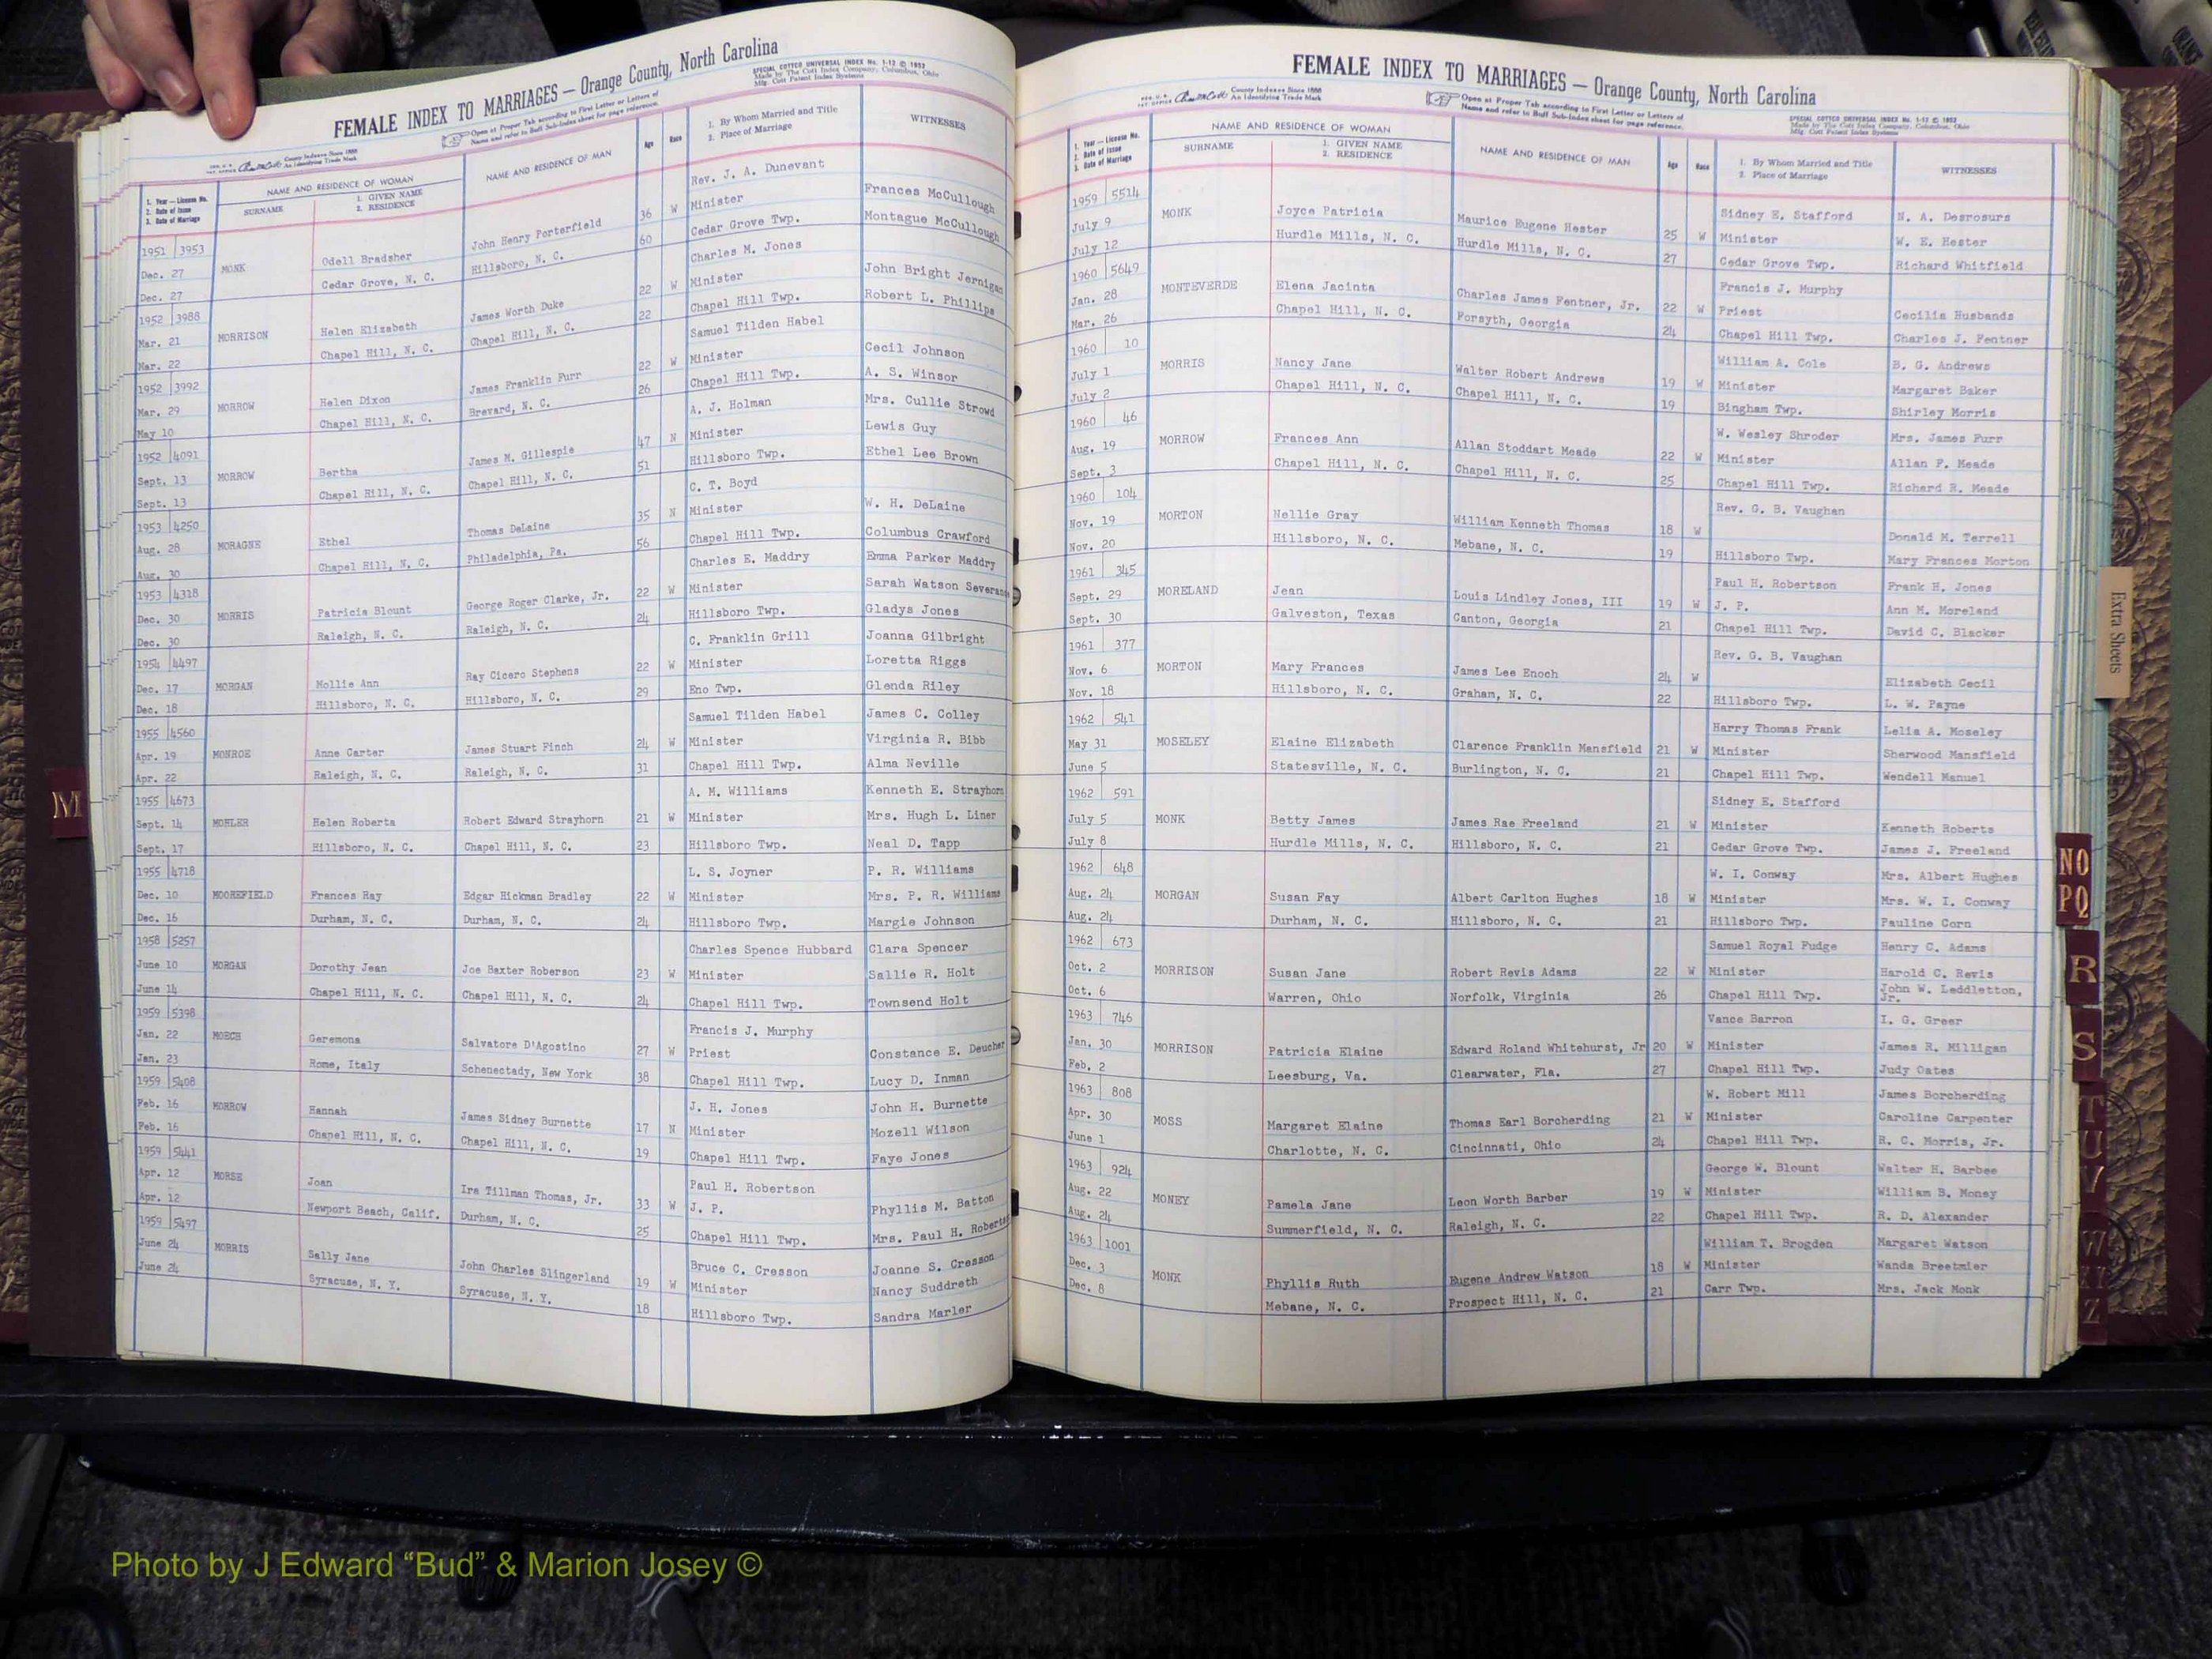 FEMALE INDEX TO MARRIAGES — Orange County, North Carolina
SPECIAL COTTCO UNIVERSAL INDEX No. 1-12 © 1952
Made by The Cott Index Company, Columbus, Ohio
Mfg. Cott Patent Index Systems
County Indexes Since 1888
An Identifying Trade Mark
Open at Proper Tab according to First Letter or Letters of
Name and refer to Buff Sub-Index sheet for page reference.
1. Year — License No.
2. Date of Issue
3. Date of Marriage
NAME AND RESIDENCE OF WOMAN
SURNAME
1. GIVEN NAME
2. RESIDENCE
NAME AND RESIDENCE OF MAN
Age
Race
1. By Whom Married and Title
2. Place of Marriage
WITNESSES
Rev. J. A. Dunevant
1951 3953 John Henry Porterfield 36 W Minister Frances McCullough
Dec. 27 MONK Odell Bradsher Hillsboro, N. C. 60 Cedar Grove Twp. Montague McCullough
Dec. 27 Cedar Grove, N. C.
Charles M. Jones
1952 3988 James Worth Duke 22 W Minister John Bright Jernigan
Mar. 21 MORRISON Helen Elizabeth Chapel Hill, N. C. 22 Chapel Hill Twp. Robert L. Phillips
Mar. 22 Chapel Hill, N. C.
Samuel Tilden Habel
1952 3992 James Franklin Furr 22 W Minister Cecil Johnson
Mar. 29 MORROW Helen Dixon Brevard, N. C. 26 Chapel Hill Twp. A. S. Winsor
May 10 Chapel Hill, N. C.
A. J. Holman Mrs. Cullie Strowd
1952 4091 James M. Gillespie 47 N Minister Lewis Guy
Sept. 13 MORROW Bertha Chapel Hill, N. C. 51 Hillsboro Twp. Ethel Lee Brown
Sept. 13 Chapel Hill, N. C.
C. T. Boyd
1953 4250 Thomas DeLaine 35 N Minister W. H. DeLaine
Aug. 28 MORAGNE Ethel Philadelphia, Pa. 56 Chapel Hill Twp. Columbus Crawford
Aug. 30 Chapel Hill, N. C.
Charles E. Maddry Emma Parker Maddry
1953 4318 George Roger Clarke, Jr. 22 W Minister Sarah Watson Severance
Dec. 30 MORRIS Patricia Blount Raleigh, N. C. 24 Hillsboro Twp. Gladys Jones
Dec. 30 Raleigh, N. C.
C. Franklin Grill Joanna Gilbright
1954 4497 Ray Cicero Stephens 22 W Minister Loretta Riggs
Dec. 17 MORGAN Mollie Ann Hillsboro, N. C. 29 Eno Twp. Glenda Riley
Dec. 18 Hillsboro, N. C.
Samuel Tilden Habel James C. Colley
1955 4560 James Stuart Finch 24 W Minister Virginia R. Bibb
Apr. 19 MONROE Anne Carter Raleigh, N. C. 31 Chapel Hill Twp. Alma Neville
Apr. 22 Raleigh, N. C.
1955 4673 A. M. Williams Kenneth E. Strayhorn
Sept. 14 MOHLER Helen Roberta Robert Edward Strayhorn 21 W Minister Mrs. Hugh L. Liner
Sept. 17 Hillsboro, N. C. Chapel Hill, N. C. 23 Hillsboro Twp. Neal D. Tapp
1955 4718 L. S. Joyner P. R. Williams
Dec. 10 MOOREFIELD Frances Ray Edgar Hickman Bradley 22 W Minister Mrs. P. R. Williams
Dec. 16 Durham, N. C. Durham, N. C. 24 Hillsboro Twp. Margie Johnson
1958 5257 Charles Spence Hubbard Clara Spencer
June 10 MORGAN Dorothy Jean Joe Baxter Roberson 23 W Minister Sallie R. Holt
June 14 Chapel Hill, N. C. Chapel Hill, N. C. 24 Chapel Hill Twp. Townsend Holt
1959 5398 Francis J. Murphy
Jan. 22 MOECH Geremona Salvatore D'Agostino 27 W Priest Constance E. Deucher
Jan. 23 Rome, Italy Schenectady, New York 38 Chapel Hill Twp. Lucy D. Inman
1959 5408 J. H. Jones John H. Burnette
Feb. 16 MORROW Hannah James Sidney Burnette 17 N Minister Mozell Wilson
Feb. 16 Chapel Hill, N. C. Chapel Hill, N. C. 19 Chapel Hill Twp. Faye Jones
1959 5441 Paul H. Robertson
Apr. 12 MORSE Joan Ira Tillman Thomas, Jr. 33 W J. P. Phyllis M. Batton
Apr. 12 Newport Beach, Calif. Durham, N. C. 25 Chapel Hill Twp. Mrs. Paul H. Robertson
1959 5497 Bruce C. Cresson Joanne S. Cresson
June 24 MORRIS Sally Jane John Charles Slingerland 19 W Minister Nancy Suddreth
June 24 Syracuse, N. Y. Syracuse, N. Y. 18 Hillsboro Twp. Sandra Marler
M
FEMALE INDEX TO MARRIAGES — Orange County, North Carolina
County Indexes Since 1888
An Identifying Trade Mark
Open at Proper Tab according to First Letter or Letters of
Name and refer to Buff Sub-Index sheet for page reference.
SPECIAL COTTCO UNIVERSAL INDEX No. 1-12 © 1952
Made by The Cott Index Company, Columbus, Ohio
Mfg. Cott Patent Index Systems
1. Year — License No.
2. Date of Issue
3. Date of Marriage
NAME AND RESIDENCE OF WOMAN
SURNAME
1. GIVEN NAME
2. RESIDENCE
NAME AND RESIDENCE OF MAN
Age
Race
1. By Whom Married and Title
2. Place of Marriage
WITNESSES
1959 5514 Sidney E. Stafford N. A. Desrosurs
July 9 MONK Joyce Patricia Maurice Eugene Hester 25 W Minister W. E. Hester
July 12 Hurdle Mills, N. C. Hurdle Mills, N. C. 27 Cedar Grove Twp. Richard Whitfield
1960 5649 Francis J. Murphy
Jan. 28 MONTEVERDE Elena Jacinta Charles James Fentner, Jr. 22 W Priest Cecilia Husbands
Mar. 26 Chapel Hill, N. C. Forsyth, Georgia 24 Chapel Hill Twp. Charles J. Fentner
1960 10 William A. Cole B. G. Andrews
July 1 MORRIS Nancy Jane Walter Robert Andrews 19 W Minister Margaret Baker
July 2 Chapel Hill, N. C. Chapel Hill, N. C. 19 Bingham Twp. Shirley Morris
1960 46 W. Wesley Shroder Mrs. James Furr
Aug. 19 MORROW Frances Ann Allan Stoddart Meade 22 W Minister Allan F. Meade
Sept. 3 Chapel Hill, N. C. Chapel Hill, N. C. 25 Chapel Hill Twp. Richard R. Meade
1960 104 Rev. G. B. Vaughan
Nov. 19 MORTON Nellie Gray William Kenneth Thomas 18 W Donald M. Terrell
Nov. 20 Hillsboro, N. C. Mebane, N. C. 19 Hillsboro Twp. Mary Frances Morton
1961 345 Paul H. Robertson Frank H. Jones
Sept. 29 MORELAND Jean Louis Lindley Jones, III 19 W J. P. Ann M. Moreland
Sept. 30 Galveston, Texas Canton, Georgia 21 Chapel Hill Twp. David C. Blacker
1961 377 Rev. G. B. Vaughan
Nov. 6 MORTON Mary Frances James Lee Enoch 24 W Elizabeth Cecil
Nov. 18 Hillsboro, N. C. Graham, N. C. 22 Hillsboro Twp. L. W. Payne
1962 541 Harry Thomas Frank Lelia A. Moseley
May 31 MOSELEY Elaine Elizabeth Clarence Franklin Mansfield 21 W Minister Sherwood Mansfield
June 5 Statesville, N. C. Burlington, N. C. 21 Chapel Hill Twp. Wendell Manuel
1962 591 Sidney E. Stafford
July 5 MONK Betty James James Rae Freeland 21 W Minister Kenneth Roberts
July 8 Hurdle Mills, N. C. Hillsboro, N. C. 21 Cedar Grove Twp. James J. Freeland
1962 648 W. I. Conway Mrs. Albert Hughes
Aug. 24 MORGAN Susan Fay Albert Carlton Hughes 18 W Minister Mrs. W. I. Conway
Aug. 24 Durham, N. C. Hillsboro, N. C. 21 Hillsboro Twp. Pauline Corn
1962 673 Samuel Royal Fudge Henry C. Adams
Oct. 2 MORRISON Susan Jane Robert Revis Adams 22 W Minister Harold C. Revis
Oct. 6 Warren, Ohio Norfolk, Virginia 26 Chapel Hill Twp. John W. Leddletton,
Jr.
1963 746 Vance Barron I. G. Greer
Jan. 30 MORRISON Patricia Elaine Edward Roland Whitehurst, Jr 20 W Minister James R. Milligan
Feb. 2 Leesburg, Va. Clearwater, Fla. 27 Chapel Hill Twp. Judy Oates
1963 808 W. Robert Mill James Borcherding
Apr. 30 MOSS Margaret Elaine Thomas Earl Borcherding 21 W Minister Caroline Carpenter
June 1 Charlotte, N. C. Cincinnati, Ohio 24 Chapel Hill Twp. R. C. Morris, Jr.
1963 924 George W. Blount Walter H. Barbee
Aug. 22 MONEY Pamela Jane Leon Worth Barber 19 W Minister William B. Money
Aug. 24 Summerfield, N. C. Raleigh, N. C. 22 Chapel Hill Twp. R. D. Alexander
1963 1001 William T. Brogden Margaret Watson
Dec. 3 MONK Phyllis Ruth Eugene Andrew Watson 18 W Minister Wanda Breetmier
Dec. 8 Mebane, N. C. Prospect Hill, N. C. 21 Carr Twp. Mrs. Jack Monk
Extra Sheets
NO
PQ
R
S
T
U
V
W
Z
Photo by J Edward “Bud” & Marion Josey ©